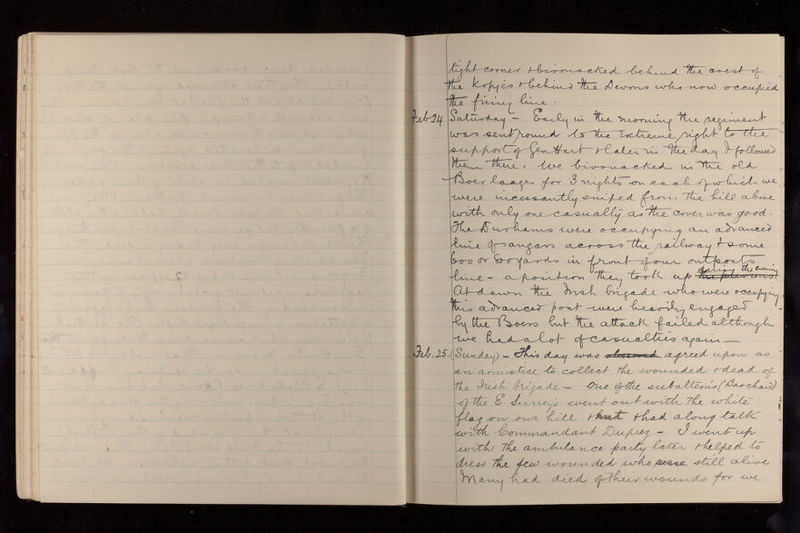 tight corner & bivouacked behind the crest of
the kopjes & behind the Devons who now occupied
the firing line.
Feb 24 Saturday - Early in the morning the regiment
was sent round to the extreme right to the
support of Gen Hart & later in the day I followed
them there. We bivouacked in the old
Boer laager for 3 nights on each of which we
were incessantly sniped from the hill above
with only one casualty as the cover was good.
The Durhams were occupying an advanced
line of sangars across the railway & some
600 or 800 yards in front of our outposts
line - a position they took up during the evening
At dawn the Irish brigade who were occupying
this advanced post were heavily engaged
by the Boers but the attack failed although
we had a lot of casualties again -
Feb. 25 (Sunday) - This day was agreed upon as
an armistice to collect the wounded & dead of
the Irish brigade - One of the subalterns (Barchard)
of the E Surreys went out with the white
flag on our hill & had a long talk
with Commandant Duprez - I went up
with the ambulance party later & helped to
dress the few wounded who were still alive
Many had died of their wounds for we